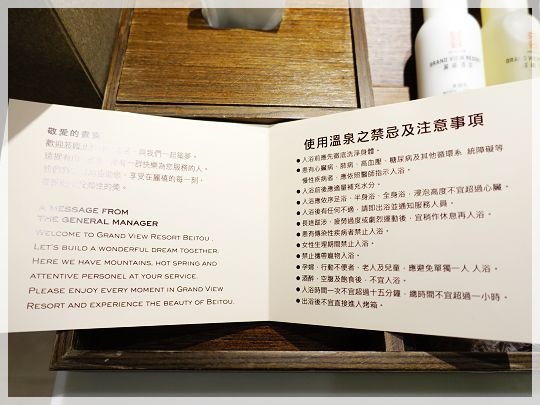 GRAND VIEW RESORT
GRAND VIEW RESO
敬愛的貴賓
與我們一起築夢。
群快樂為您服務的人。
享受在麗禧的每一刻，
A MESSAGE FROM
THE GENERAL MANAGER
WELCOME TO GRAND VIEW RESORT BEITOU,
LET'S BUILD A WONDERFUL DREAM TOGETHER.
HERE WE HAVE MOUNTAINS, HOT SPRING AND
ATTENTIVE PERSONEL AT YOUR SERVICE.
PLEASE ENJOY EVERY MOMENT IN GRAND VIEW
RESORT AND EXPERIENCE THE BEAUTY OF BEITOU.
使用溫泉之禁忌及注意事項
●入浴前應先徹底洗淨身體。
●患有心臟病、肺病、高血壓、糖尿病及其他循環系 統障礙等
慢性疾病者，應依照醫師指示入浴。
●入浴前後應適量補充水分。
●入浴應依序足浴、半身浴、全身浴，浸泡高度不宜超過心臟。
●入浴後有任何不適，請即出浴並通知服務人員。
●長途跋涉、疲勞過度或劇烈運動後，宜稍作休息再入浴。
●患有傳染性疾病者禁止入浴。
●女性生理期間禁止入浴。
●禁止攜帶寵物入浴。
●孕婦、行動不便者、老人及兒童，應避免單獨一人 入浴。
●酒醉、空腹及飽食後，不宜入浴。
●入浴時間一次不宜超過十五分鐘，總時間不宜超過一小時。
●出浴後不宜直接進入烤箱。